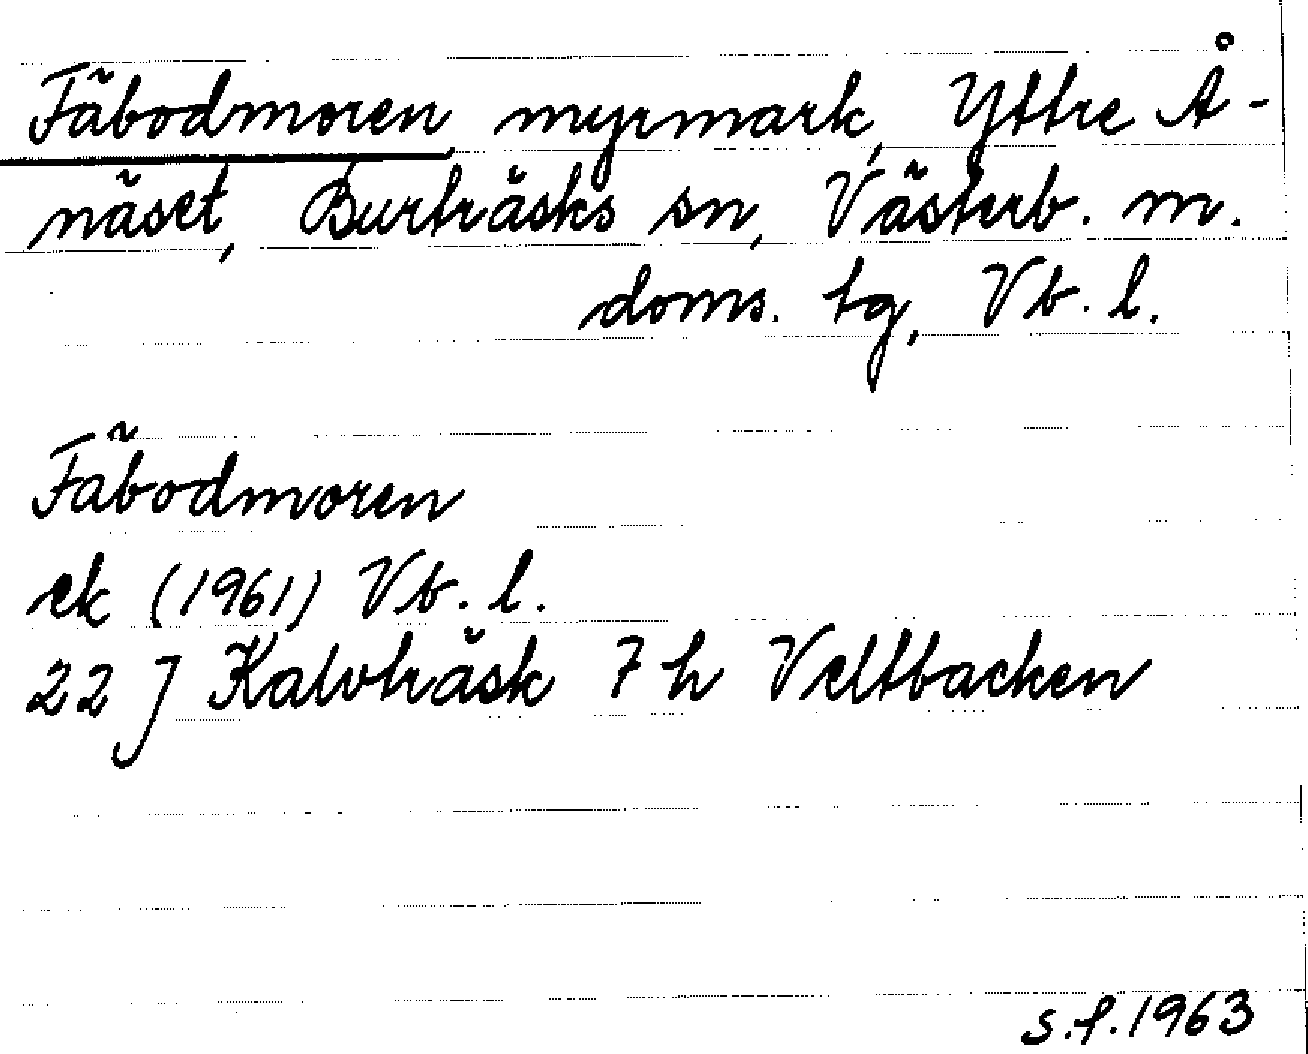 Fäbodmoren, myrmark, Yttre Å-
näset, Burträsks sn, Västerb. m.
doms. tg, Vb. l.
Fäbodmoren
ek (1961) Vb. l.
22 J Kalvträsk 7 h Veltbacken
s.f. 1963